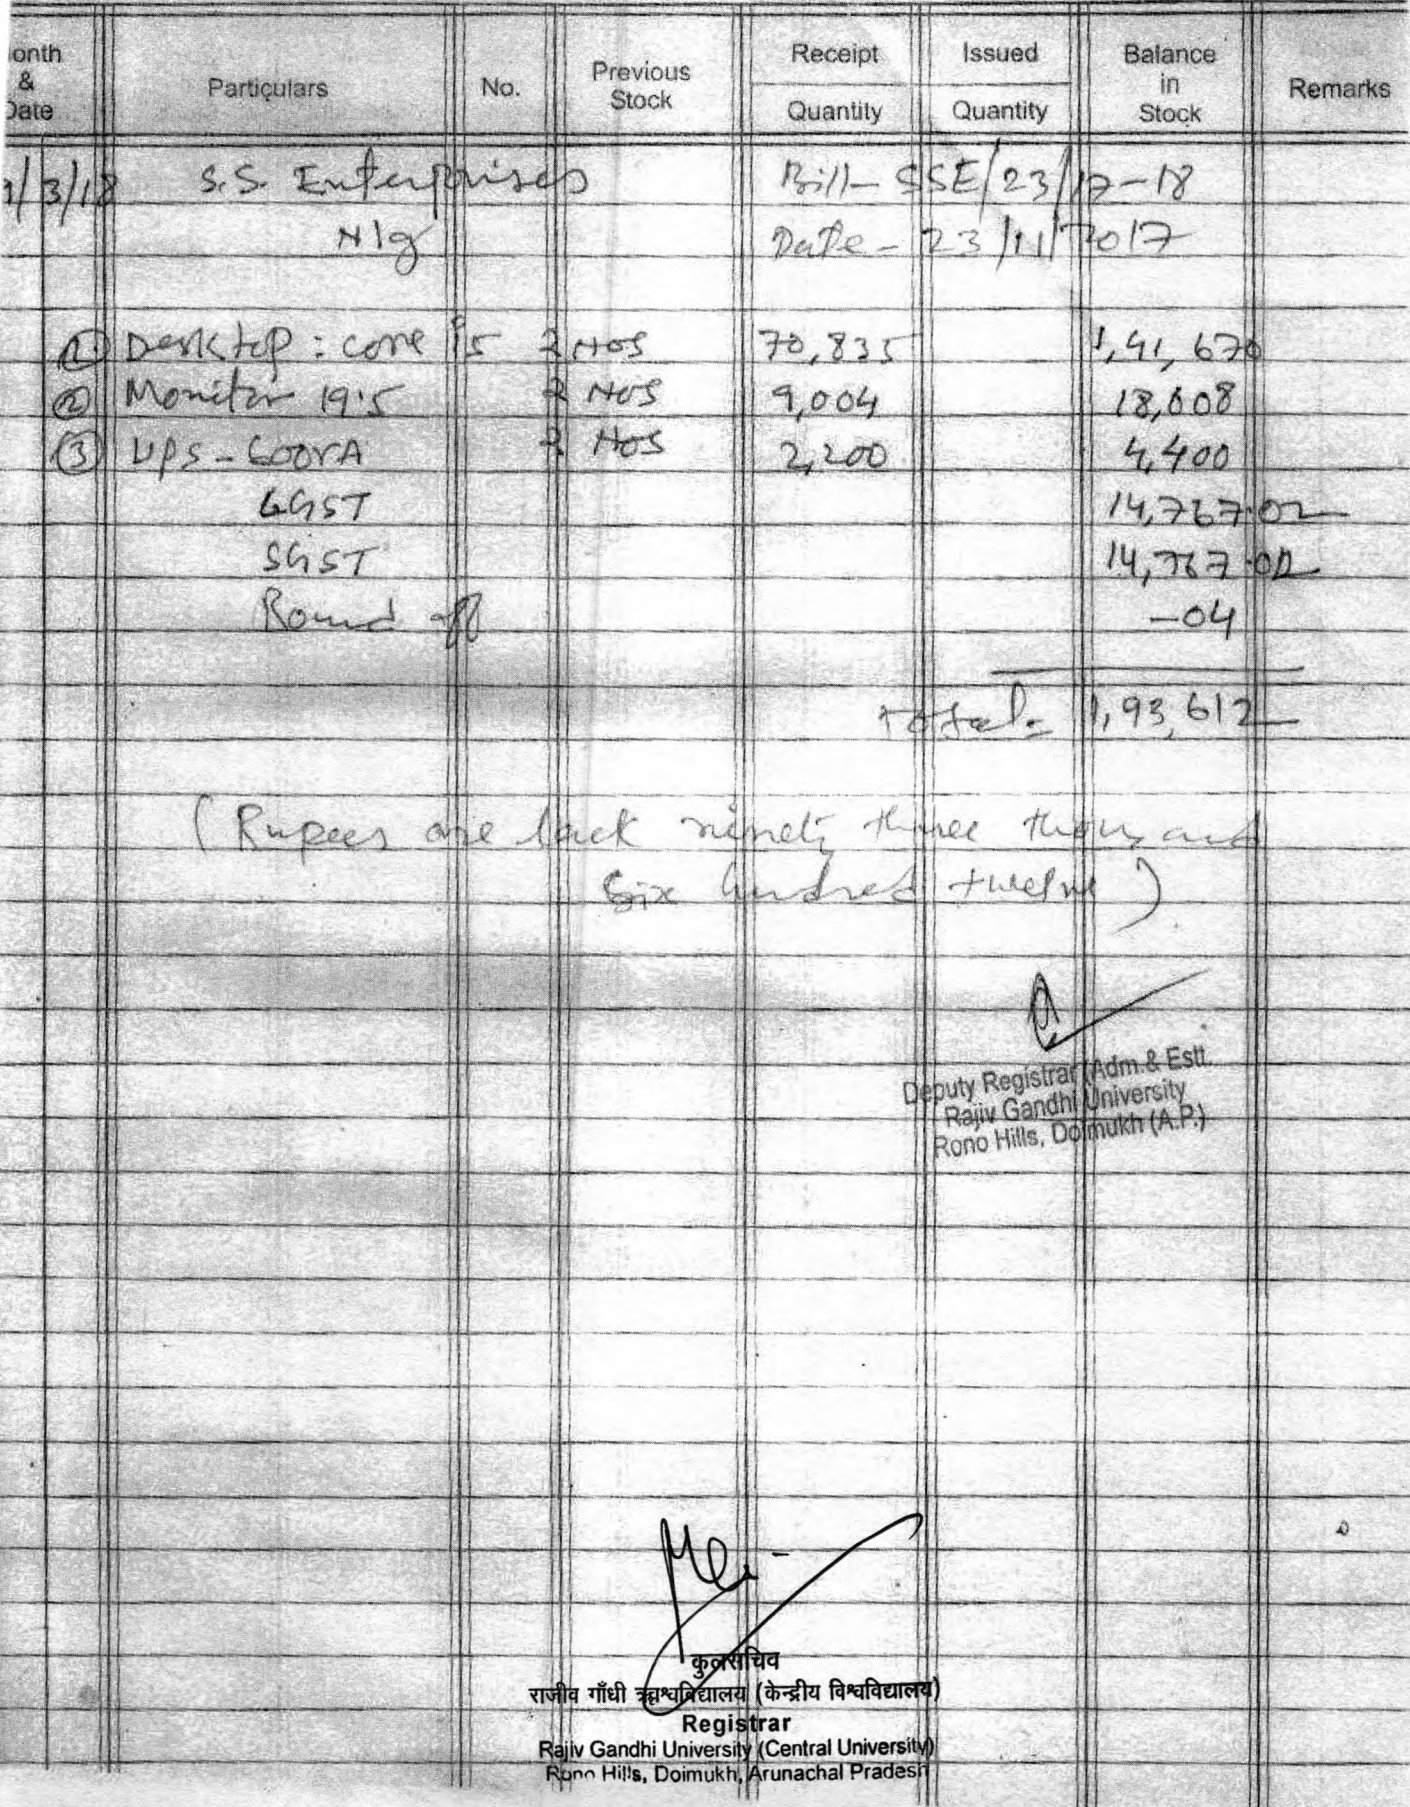 onth & Date Particulars No. Previous Stock Receipt Quantity Issued Quantity Balance in Stock Remarks
1/3/18 S.S. Enterprises Bill- SSE/23/17-18
Nlg Date - 23/11/2017
① Desktop : core i5 2 Nos 70,835 1,41,670
② Monitor 19.5 2 Nos 9,004 18,008
③ UPS - 600VA 2 Nos 2,200 4,400
CGST 14,767.02
SGST 14,767.02
Round off -04
Total- 1,93,612
(Rupees one lack ninety three thousand
six hundred twelve)
Deputy Registrar (Adm.& Estt.
Rajiv Gandhi University
Rono Hills, Doimukh (A.P.)
कुलसचिव
राजीव गाँधी विश्वविद्यालय (केन्द्रीय विश्वविद्यालय)
Registrar
Rajiv Gandhi University (Central University)
Rono Hills, Doimukh, Arunachal Pradesh